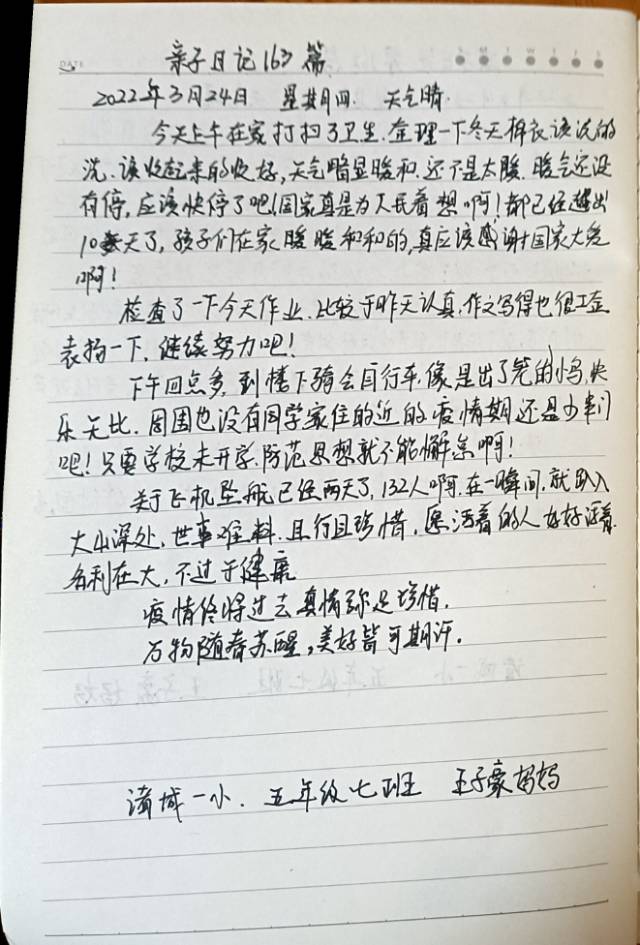 DATE
亲子日记163篇
2022年3月24日 星期四 天气晴.
今天上午在家打扫了卫生.整理一下冬天棉衣该洗的
洗.该收起来的收好,天气暗显暖和.还不是太暖.暖气还没
有停,应该快停了吧!国家真是为人民着想啊!都已经超出
10天了,孩子们在家暖暖和和的,真应该感谢国家大爱
啊!
检查了一下今天作业.比较于昨天认真,作文写得也很工整
表扬一下,继续努力吧!
下午四点多,到楼下骑会自行车.像是出了笼的小鸟,快
乐无比.周围也没有同学家住的近的.疫情期还是少串门
吧!只要学校未开学.防范思想就不能懈怠啊!
关于飞机坠航已经两天了,132人啊.在一瞬间.就趴入
大山深处,世事难料.且行且珍惜,愿活着的人好好活着.
名利在大,不过于健康
疫情终将过去真情弥足珍惜.
万物随春苏醒,美好皆可期许.
诸城一小.五年级七班 王子豪妈妈